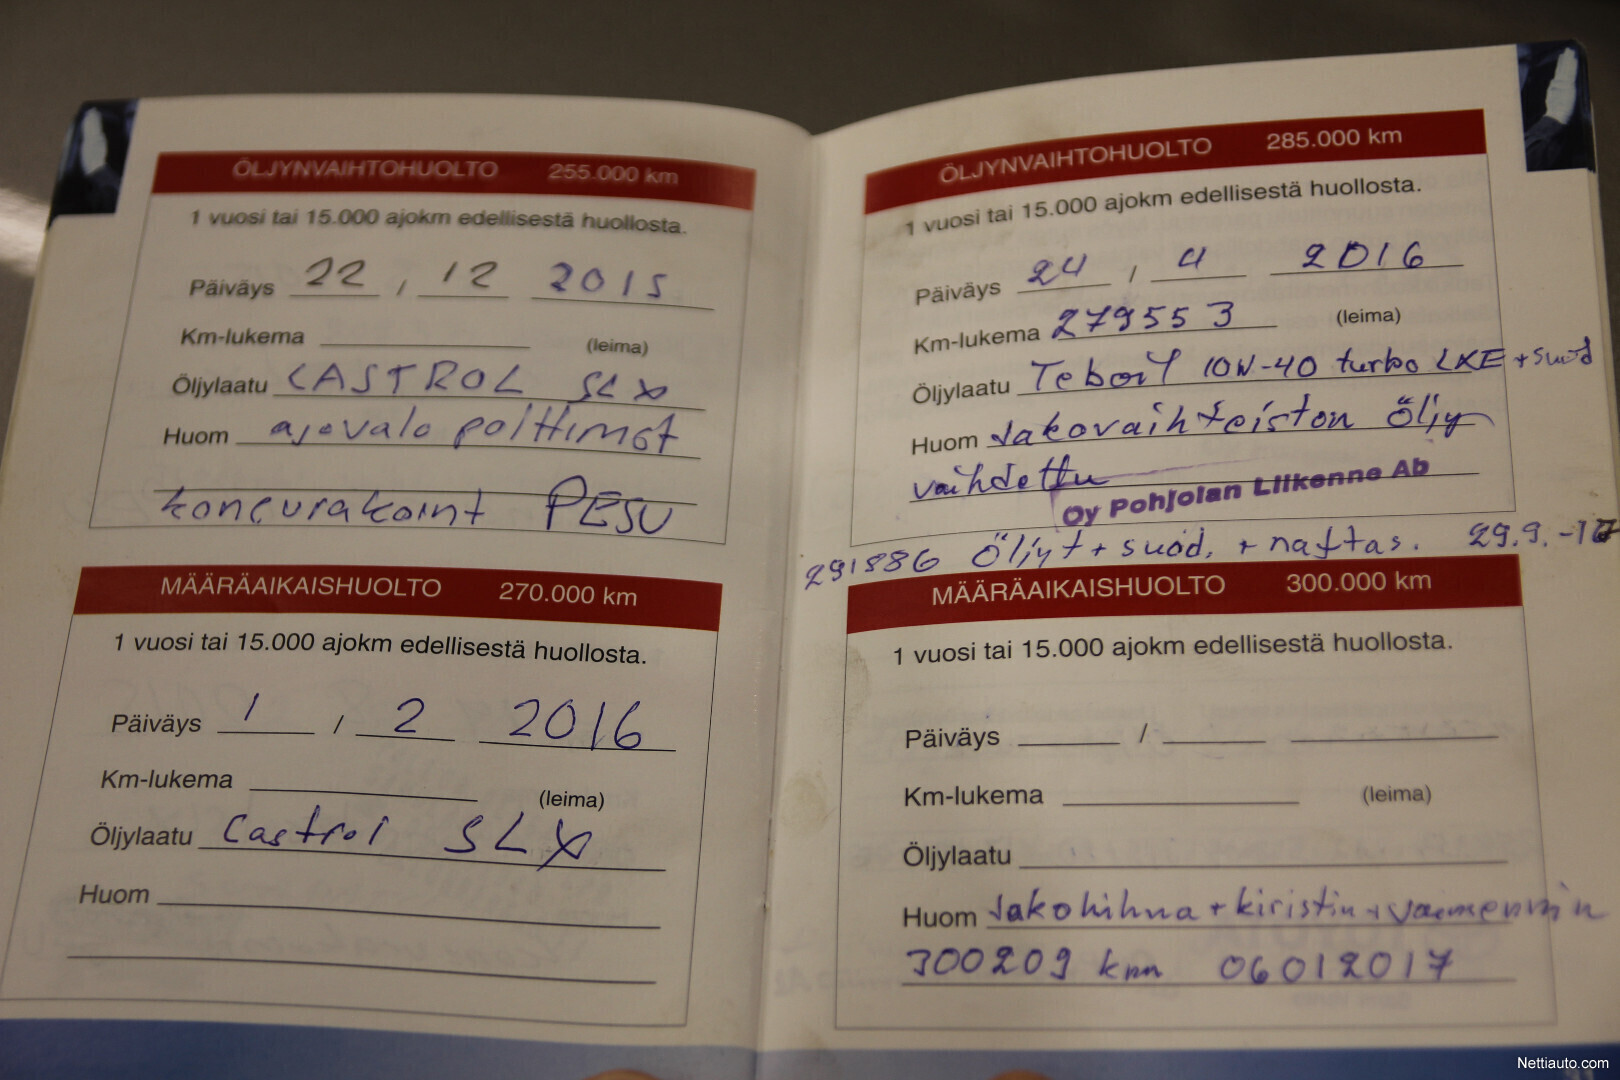 ÖLJYNVAIHTOHUOLTO 255.000 km
1 vuosi tai 15.000 ajokm edellisestä huollosta.
Päiväys 22 / 12 2015
Km-lukema (leima)
Öljylaatu CASTROL SLX
Huom ajovalo polttimot
koneurakoint PESU
MÄÄRÄAIKAISHUOLTO 270.000 km
1 vuosi tai 15.000 ajokm edellisestä huollosta.
Päiväys 1 / 2 2016
Km-lukema (leima)
Öljylaatu Castrol SLX
Huom
ÖLJYNVAIHTOHUOLTO 285.000 km
1 vuosi tai 15.000 ajokm edellisestä huollosta.
Päiväys 24 / 4 2016
Km-lukema 279553 (leima)
Öljylaatu Teboil 10W-40 turbo LXE + suod
Huom Jakovaihteiston öljy
vaihdettu
Oy Pohjolan Liikenne Ab
291886 Öljyt + suod. + naftas. 29.9.-16
MÄÄRÄAIKAISHUOLTO 300.000 km
1 vuosi tai 15.000 ajokm edellisestä huollosta.
Päiväys /
Km-lukema (leima)
Öljylaatu
Huom Jakohihna + kiristin + vaimennin
300209 km 06012017
Nettiauto.com